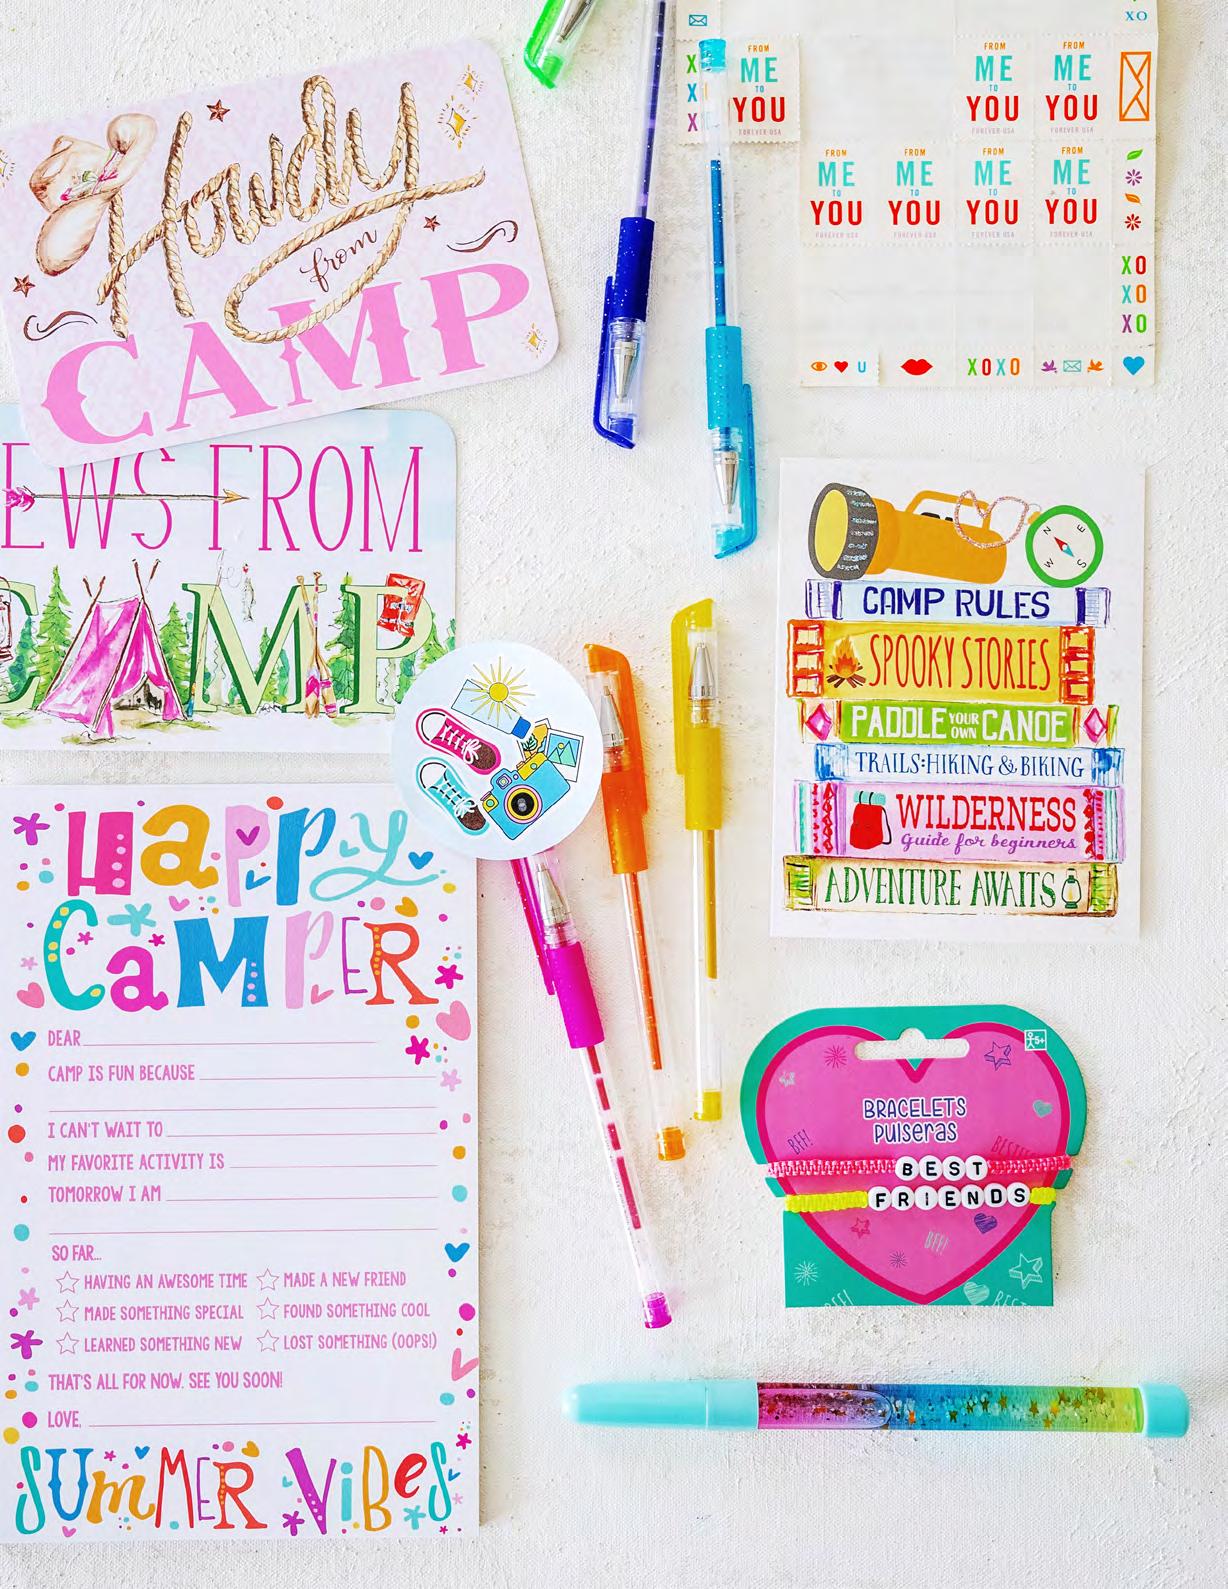 Howdy
from
CAMP
EWS FROM
CAMP
HAPPY
CAMPER
DEAR
CAMP IS FUN BECAUSE
I CAN'T WAIT TO
MY FAVORITE ACTIVITY IS
TOMORROW I AM
SO FAR...
HAVING AN AWESOME TIME MADE A NEW FRIEND
MADE SOMETHING SPECIAL FOUND SOMETHING COOL
LEARNED SOMETHING NEW LOST SOMETHING (OOPS!)
THAT'S ALL FOR NOW. SEE YOU SOON!
LOVE,
SUMMER VIBES
XO
FROM
ME
TO
YOU
FOREVER USA
FROM
ME
TO
YOU
FOREVER USA
FROM
ME
TO
YOU
FOREVER USA
FROM
ME
TO
YOU
FOREVER USA
FROM
ME
TO
YOU
FOREVER USA
FROM
ME
TO
YOU
FOREVER USA
FROM
ME
TO
YOU
FOREVER USA
X
X
X
XO
XO
XO
U
XOXO
N
E
W
S
CAMP RULES
SPOOKY STORIES
PADDLE YOUR OWN CANOE
TRAILS: HIKING & BIKING
WILDERNESS
Guide for beginners
ADVENTURE AWAITS
5+
BRACELETS
PULSERAS
BFF!
BEST
BEST
FRIENDS
BFF!
BFF!
BEST